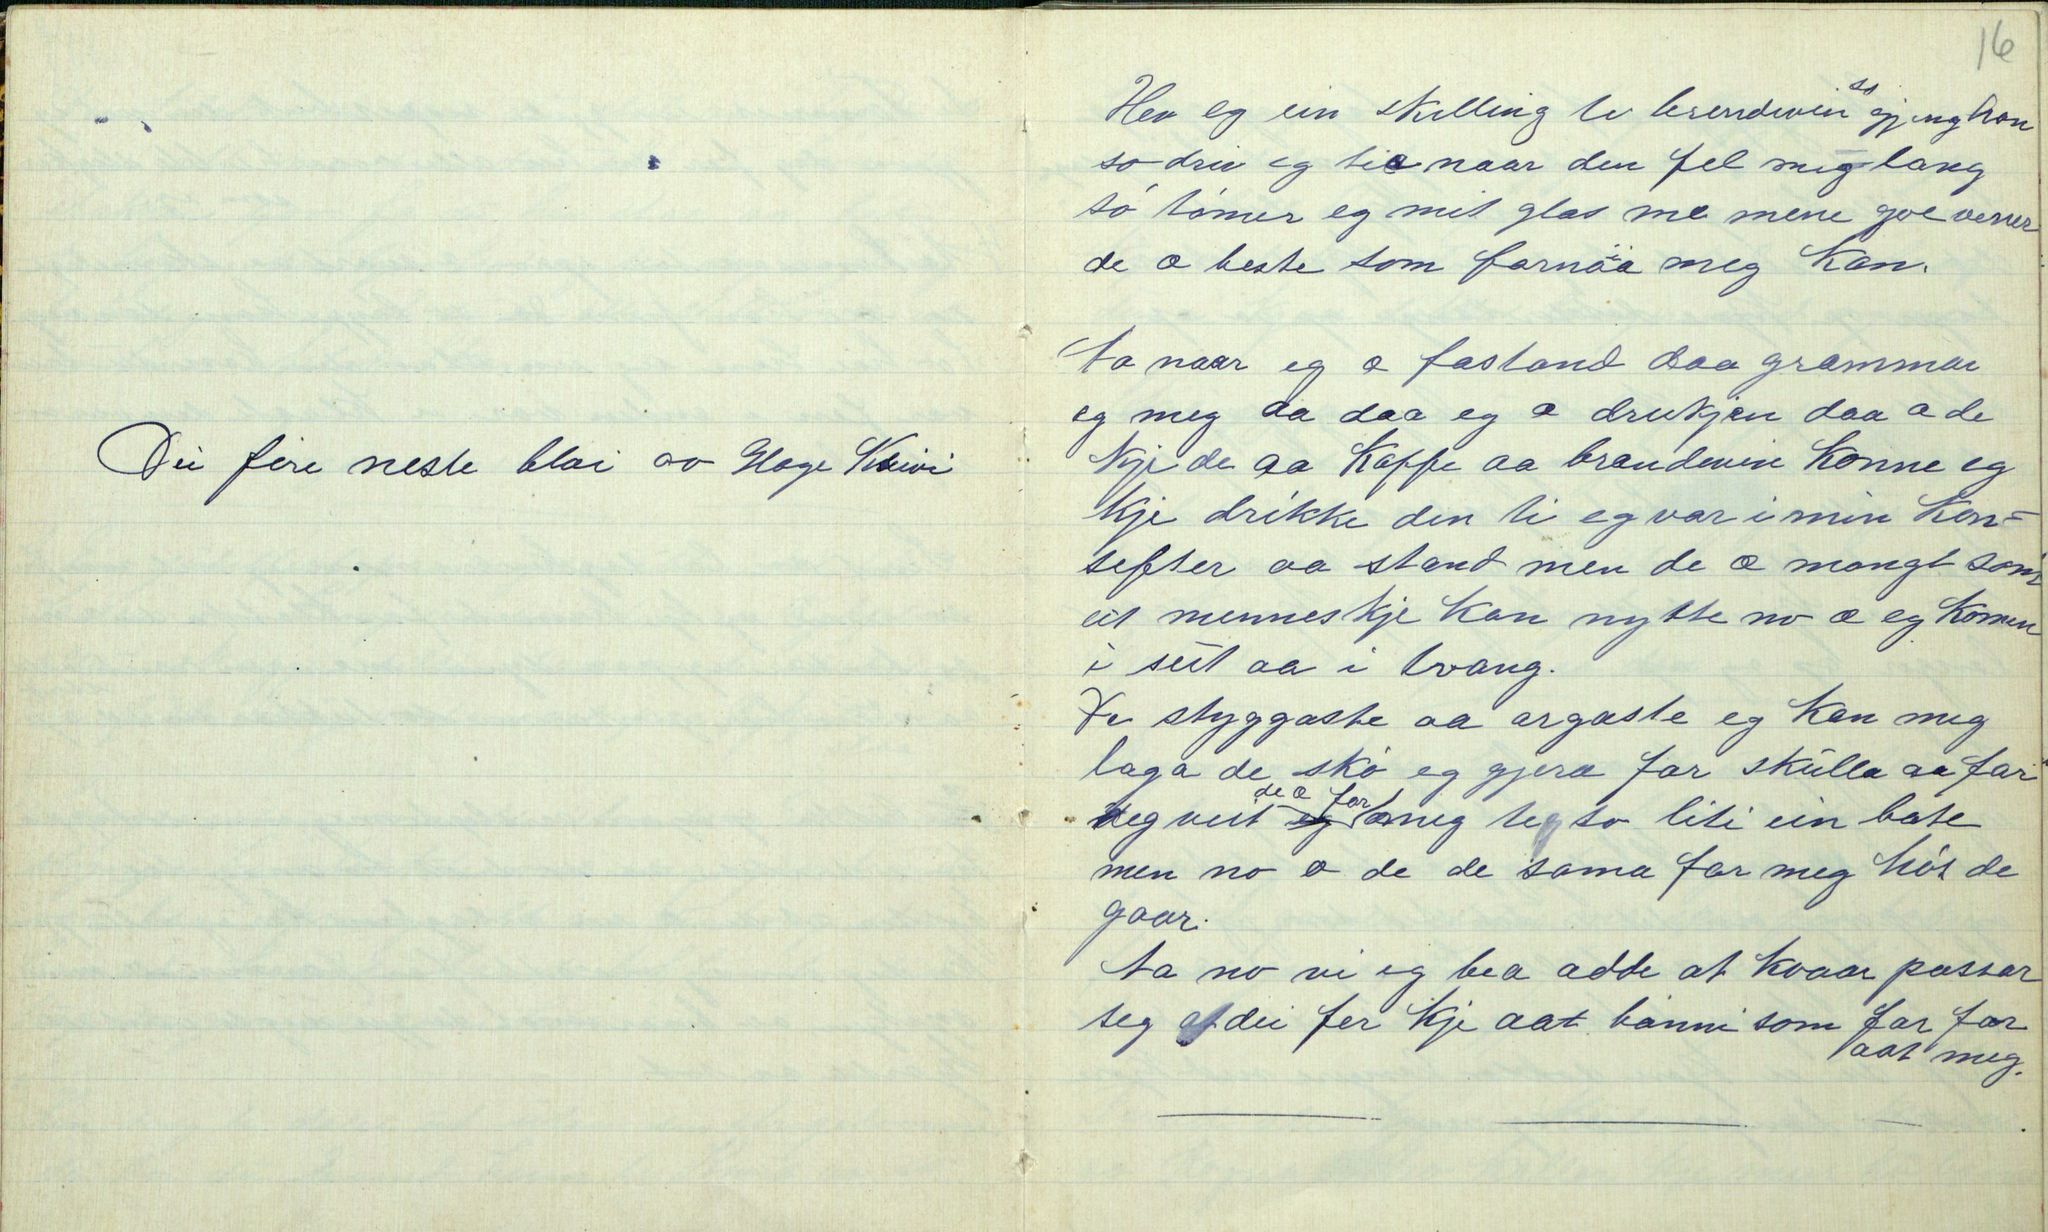 Dei fire neste blai av Hæge Kvivi
16
Hev eg ein skilling te brendevin so gjeng han
so driv eg tie naar den fel meg lang
so tómer eg mit glas me mene goe venner
de æ beste som fornöia meg kan.
Ta naar eg æ fastand daa grammar
eg meg aa daa eg æ drukjen daa æ de
kje de aa kaffe aa brændevin konne eg
kje drikke den ti eg var i min kon-
sefter aa stand men de æ mangt som
eit menneskje kan nytte no æ eg komen
i sút aa i tvang.
De styggaste aa argaste eg kan meg
laga de sko eg gjera for skúlla aa far
eg veit de æ for meg te so liti ein bate
men no æ de de sama for meg hós de
gaar.
Ta no vi eg bea adde at kvaar passar
seg at dei fer kje aat bånni som far for
aat meg.